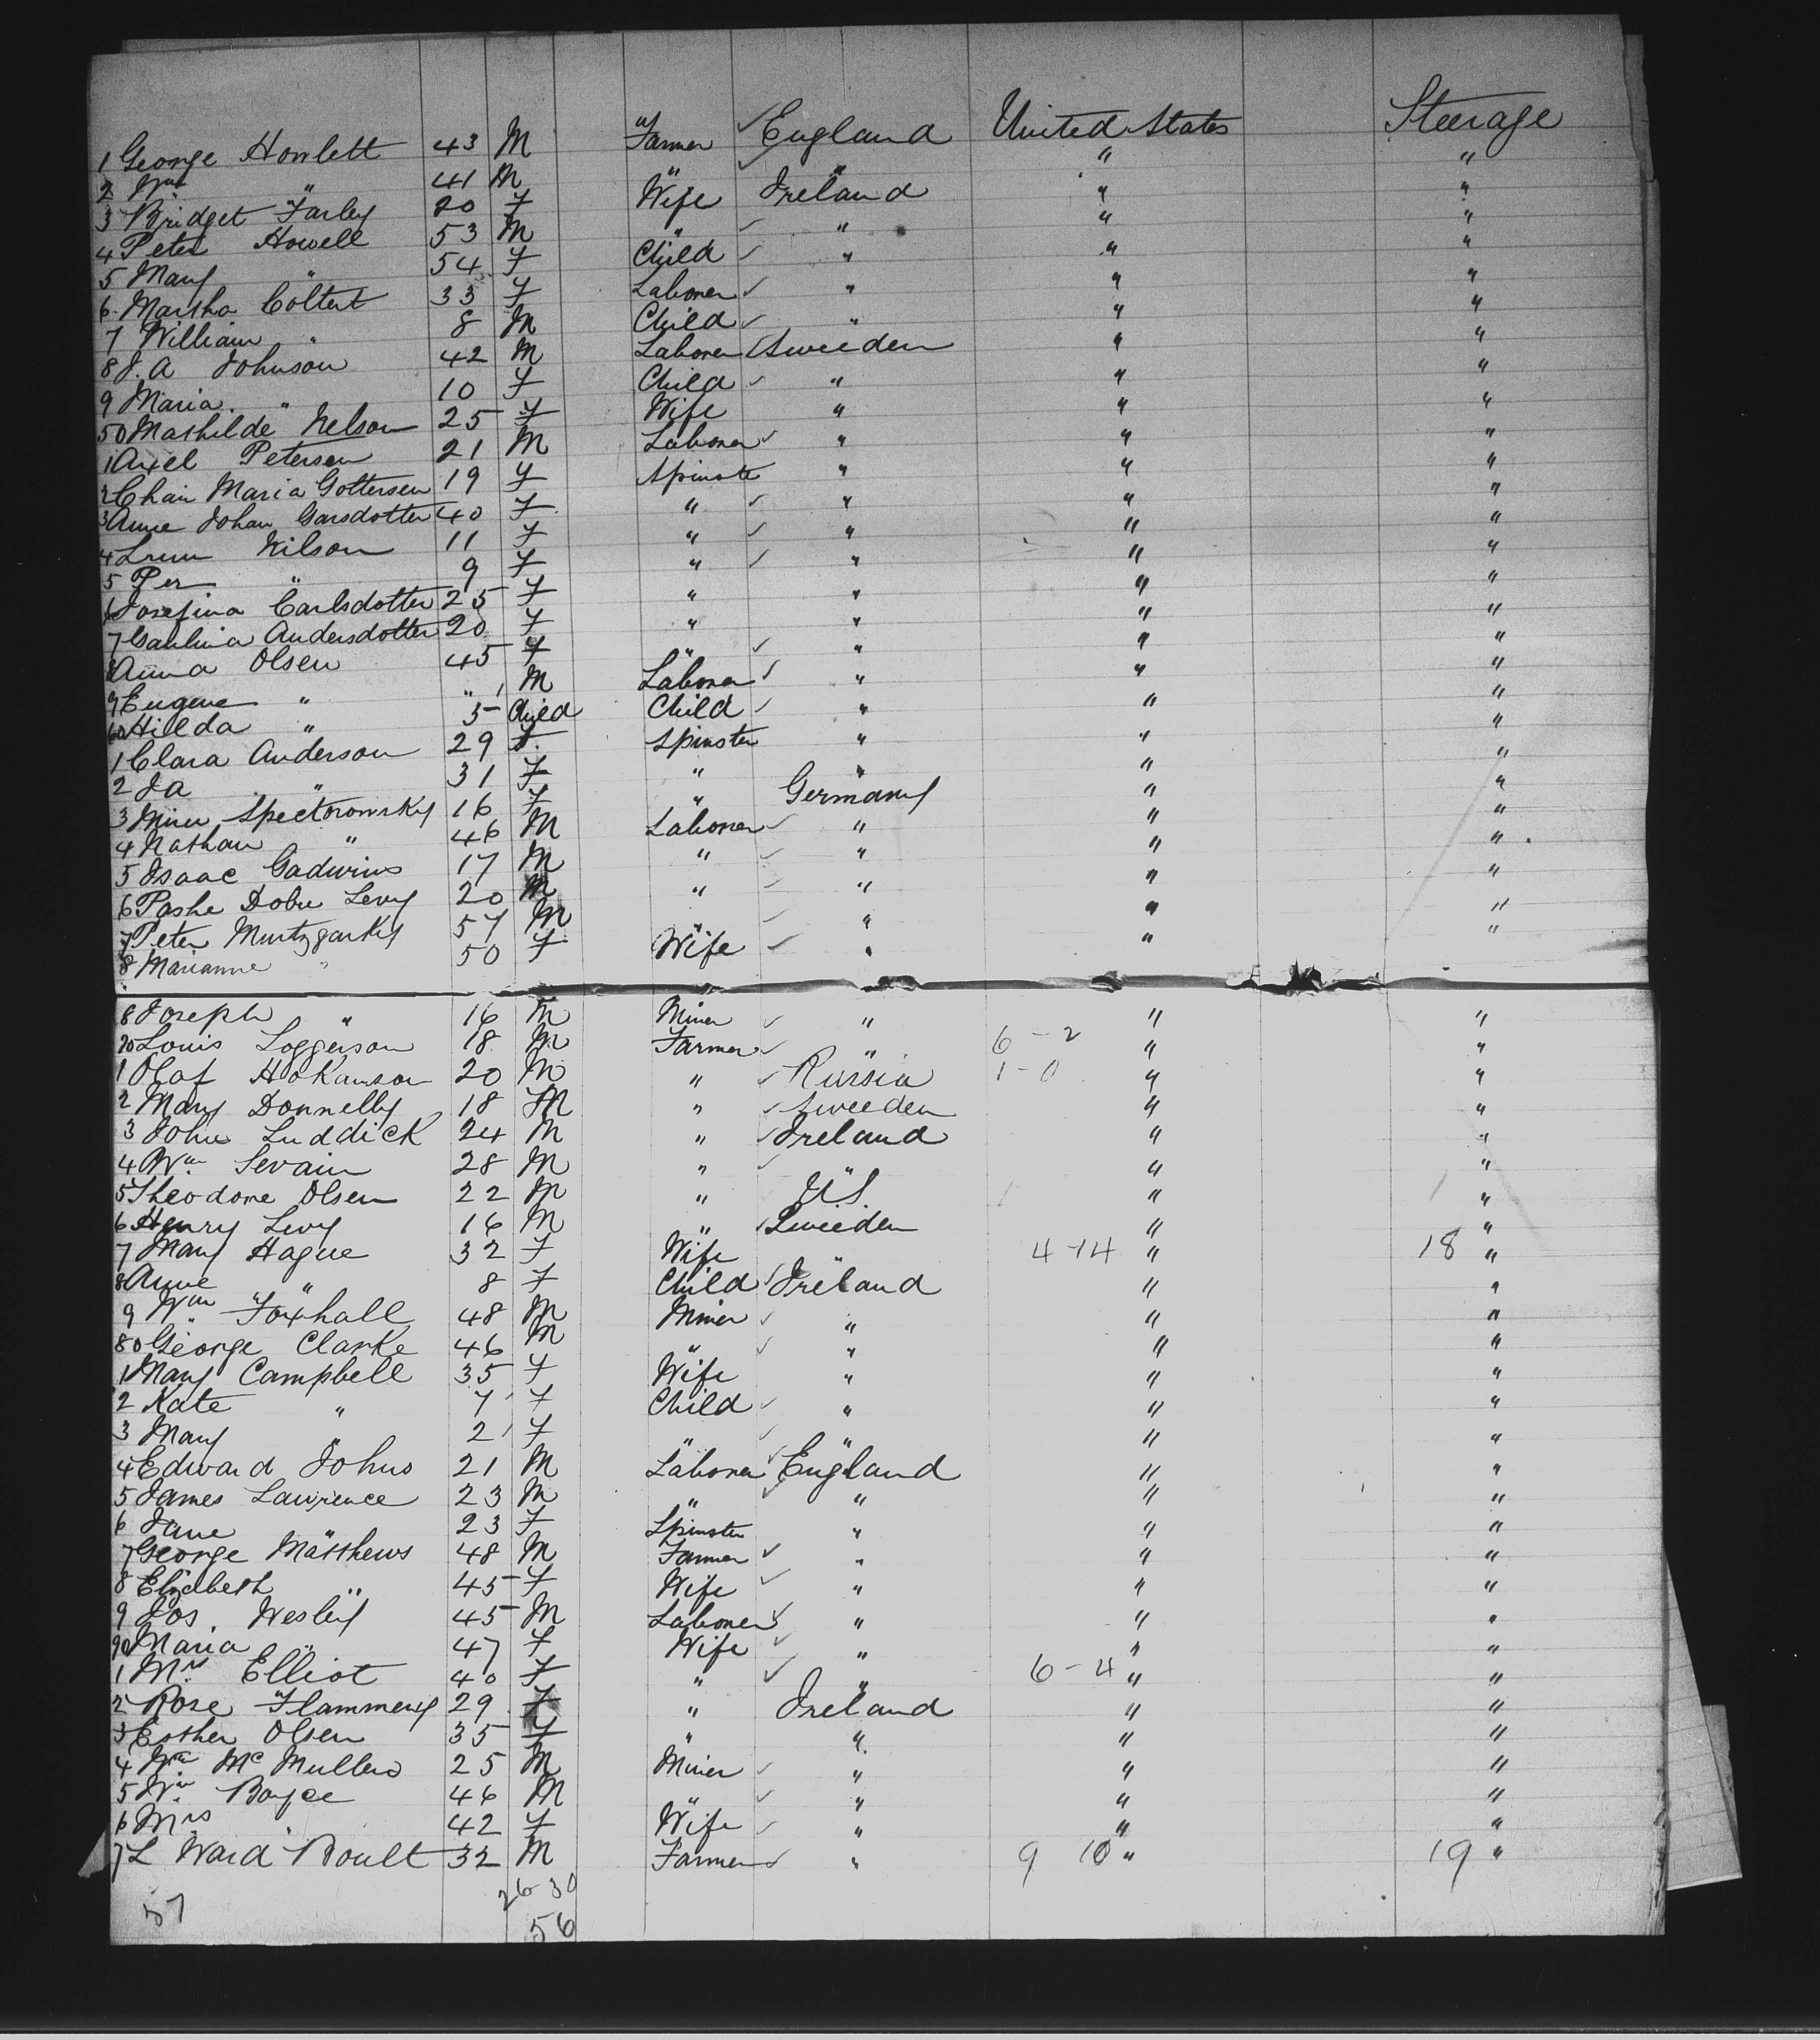 1 George Howlett 43 M " Farmer ✓ England United States Steerage
2 Wm " 41 M " " " "
3 Bridget Farley 20 F Wife Ireland " "
4 Peter Howell 53 M " ✓ " " "
5 Mary " 54 F Child ✓ " " "
6 Martha Coltert 33 F Laborer ✓ " " "
7 William " 8 M Child ✓ " " "
8 J. A Johnson 42 M Laborer Sweeden " "
9 Maria " 10 F Child ✓ " " "
50 Mathilde Nelson 25 F Wife " " "
1 Axel Peterson 21 M Laborer ✓ " " "
2 Chain Maria Gottersen 19 F Spinste " " "
3 Anne Johan Garsdotter 40 F " ✓ " " "
4 Nilson 11 F " ✓ " " "
5 Per " 9 F " ✓ " " "
6 Josefina Carlsdotter 25 F " " " "
7 Andersdotter 20 F " " " "
8 Anna Olsen 45 F " ✓ " " "
9 Eugene " " 1 M Laborer ✓ " " "
60 Hilda " 5 Child Child ✓ " " "
1 Clara Anderson 29 F. Spinster " " "
2 Ja " 31 F " " " "
3 Spectorowsky 16 F " Germany " "
4 Nathan " 46 M Laborer ✓ " " "
5 Isaac Gadwins 17 M " ✓ " " "
6 Pashe Dobu Levy 20 M " ✓ " " "
7 Peter Muntzgarky 57 M " ✓ " " "
8 Marianne " 50 F Wife ✓ " "
8 Joseph " 16 M Miner ✓ " " "
70 Louis Loggerson 18 M Farmer ✓ " 6 - 2 " "
1 Olaf Hokanson 20 M " ✓ Russia 1 - 0 " "
2 Mary Donnelly 18 M " ✓ Sweeden " "
3 John Luddick 24 M " ✓ Ireland " "
4 Wm Sevain 28 M " ✓ " " "
5 Theodore Olsen 22 M " U.S. " "
6 Henry Levy 16 M " ✓ Sweeden " "
7 Mary Hague 32 F Wife 4 - 14 " 18 "
8 Anne " 8 F Child ✓ Ireland " "
9 Wm Foxhall 48 M Miner ✓ " " "
80 George Clarke 46 M " ✓ " " "
1 Mary Campbell 35 F Wife " " "
2 Kate " 7 F Child ✓ " " "
3 Mary " 2 F " ✓ " " "
4 Edward Johns 21 M Laborer ✓ England " "
5 James Lawrence 23 M " ✓ " " "
6 Jane " 23 F Spinster " " "
7 George Matthews 48 M Farmer ✓ " " "
8 Elizabeth " 45 F Wife ✓ " " "
9 Jos. Wesley 45 M Laborer ✓ " " "
90 Maria " 47 F Wife ✓ " " "
1 Mrs Elliot 40 F " ✓ " 6 - 4 " "
2 Rose Flammery 29 F " Ireland " "
3 Esther Olsen 35 F " " " "
4 Wm Mc Mullens 25 M Miner ✓ " " "
5 Wm Boyce 46 M " ✓ " " "
6 Mrs " 42 F Wife ✓ " " "
7 L Ward Boult 32 M Farmer ✓ " 9 10 " 19 "
57 26 - 30
56